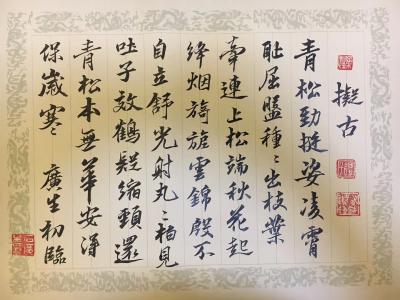 擬古
青松勁挺姿凌霄
耻屈盤種〻出枝葉
牽連上松端秋花起
絳烟旖旎雲錦殷不
自立舒光射丸〻柏見
吐子效鶴疑縮頸還
青松本無華安得
保歲寒 廣生初臨